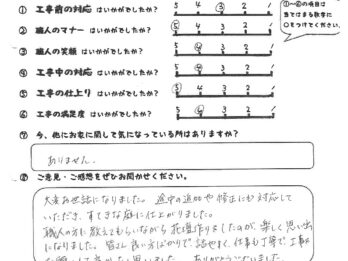 ① 工事前の対応 はいかがでしたか? 5 4 ③ 2 1
② 職人のマナー はいかがでしたか? ⑤ 4 3 2 1
③ 職人の笑顔 はいかがでしたか? 5 ④ 3 2 1
④ 工事中の対応 はいかがでしたか? 5 ④ 3 2 1
⑤ 工事の仕上り はいかがでしたか? ⑤ 4 3 2 1
⑥ 工事の満足度 はいかがでしたか? 5 ④ 3 2 1
①~⑥の項目は
当てはまる数字に
○をつけてください。
⑦ 今、他にお家に関して気になっている所はありますか?
ありません。
⑧ ご意見・ご感想をぜひお聞かせください。
大変お世話になりました。途中の追加や修正にも対応して
いただき、すてきな庭に仕上がりました。
職人の方に教えてもらいながら花壇作りをしたのが楽しく思い出
になりました。皆さん良い方ばかりで話せやすく、仕事も丁寧で工事
ありがとうございました。